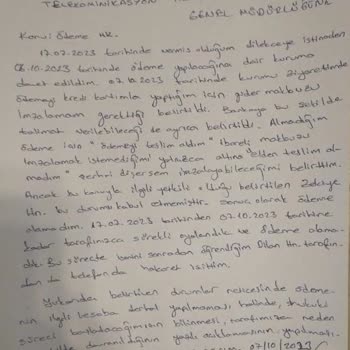 TELEKOMİNİKASYON
GENEL MÜDÜRLÜĞÜNE
Konu: Ödeme HK.
17.07.2023 tarihinde vermiş olduğum dilekçeye istinaden
06.10.2023 tarihinde ödeme yapılacağına dair kuruma
davet edildim. 07.10.2023 tarihinde kurumu ziyaretimde
ödemeyi kredi kartımla yaptığım için gider makbuzu
imzalamam gerektiği belirtildi. Bankaya bu şekilde
talimat verilebileceği de ayrıca belirtildi. Almadığım
ödeme için "ödemeyi teslim aldım" ibareli makbuzu
imzalamak istemediğimi yalnızca altına "elden teslim al-
madım" şerhi düşersem imzalayabileceğimi belirttim.
Ancak bu konuyla ilgili yetkili olduğu belirtilen
Hn. bu durumu kabul etmemiştir. Sonuç olarak ödeme
alamadım. 17.07.2023 tarihinden 07.10.2023 tarihine
kadar tarafınızca sürekli oyalandık ve ödeme alama-
dık. Bu süreçte ismini sonradan öğrendiğim Dilan Hn. tarafın-
dan da telefonda hakaret işittim.
Yukarıda belirtilen durumlar neticesinde ödeme-
nin ilgili hesaba derhal yapılmaması halinde, hukuki
süreci başlatacağımızın bilinmesi, tarafımıza neden
davranıldığının yazılı açıklamasının yapılması
07/10/2023